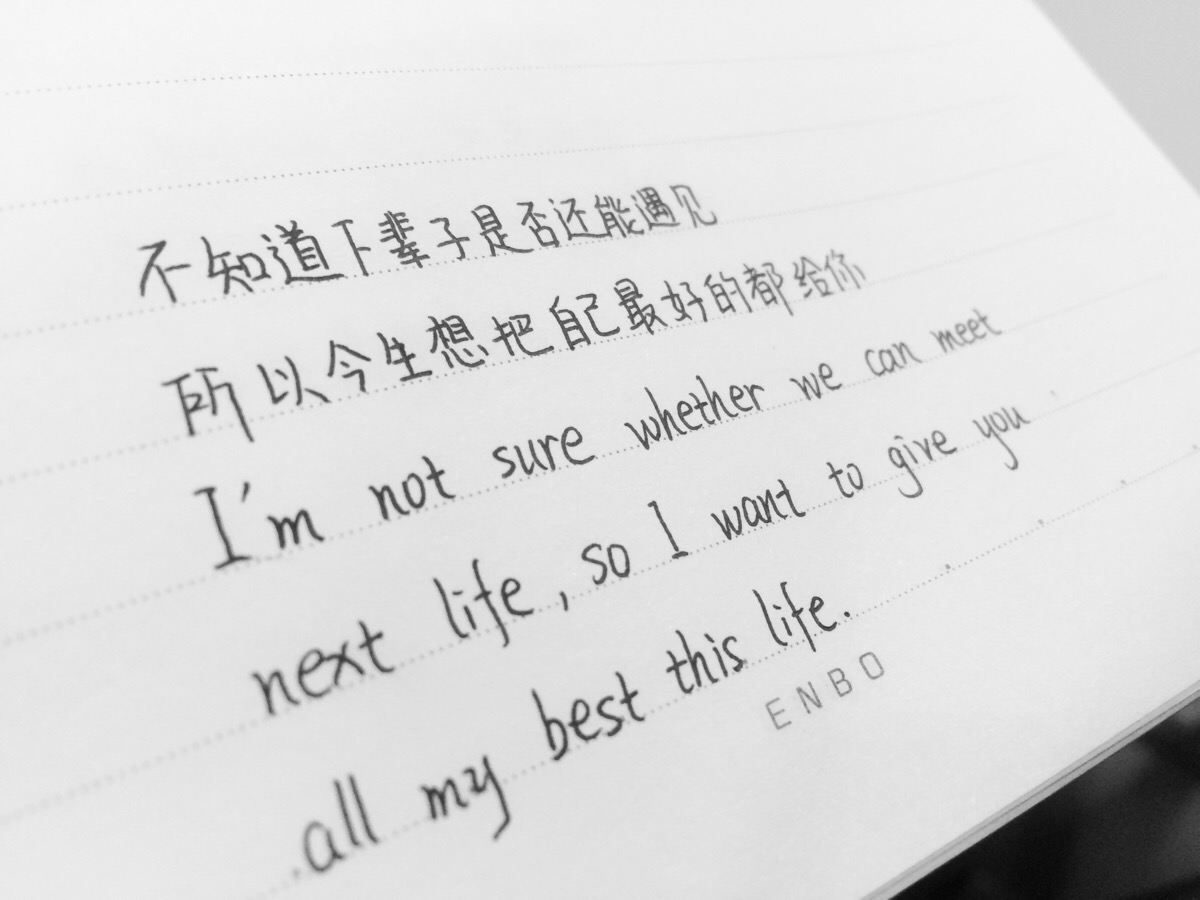 不知道下辈子是否还能遇见
所以今生想把自己最好的都给你
I'm not sure whether we can meet
next life, so I want to give you
all my best this life.
ENBO